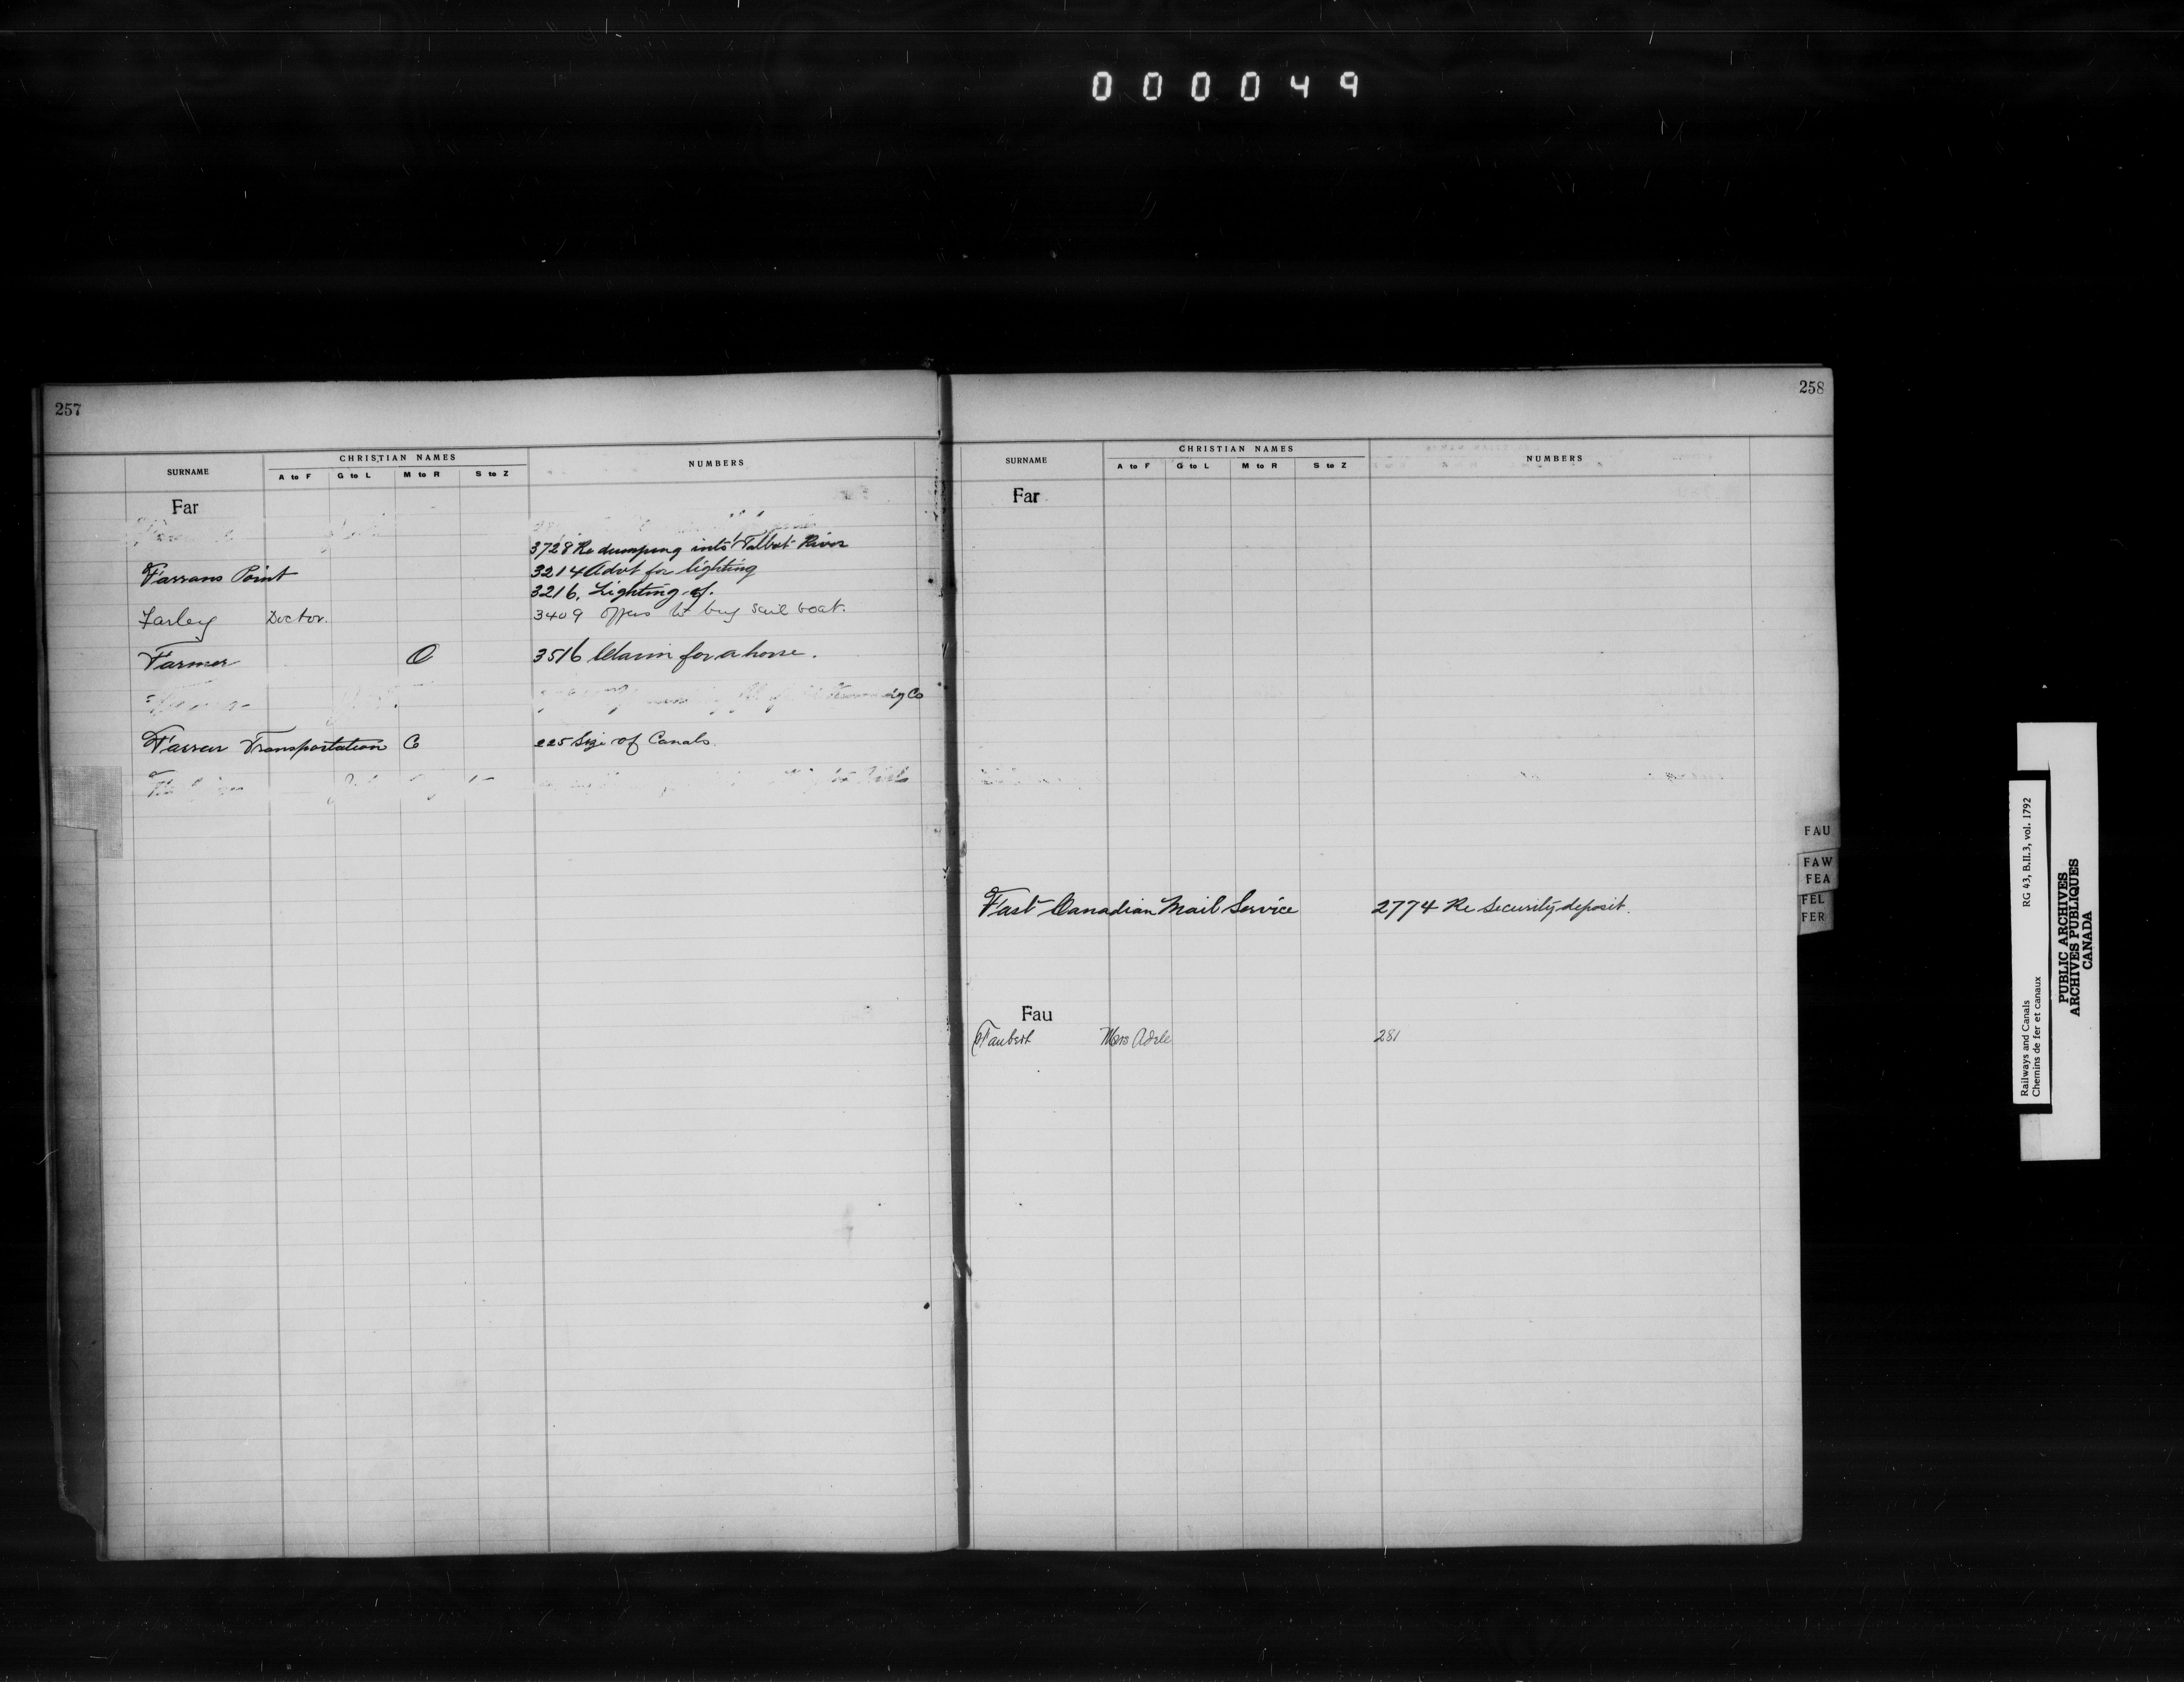 000049
257
SURNAME CHRISTIAN NAMES NUMBERS
A to F G to L M to R S to Z
Far
3728 Re dumping into Talbot River
Farrans Point 3214 Advt for lighting
3216. Lighting of.
Farley Doctor. 3409 Offers to buy sail boat.
Farmer O 3516 Claim for a horse.
Co
Farrar Transportation Co 225 Size of Canals.
258
SURNAME CHRISTIAN NAMES NUMBERS
A to F G to L M to R S to Z
Far
Fast Canadian Mail Service 2774 Re Security deposit.
Fau
Faubert Mrs Adele 281
FAU
FAW
FEA
FEL
FER
Railways and Canals RG 43, B.II.3, vol. 1792
Chemins de fer et canaux
PUBLIC ARCHIVES
ARCHIVES PUBLIQUES
CANADA